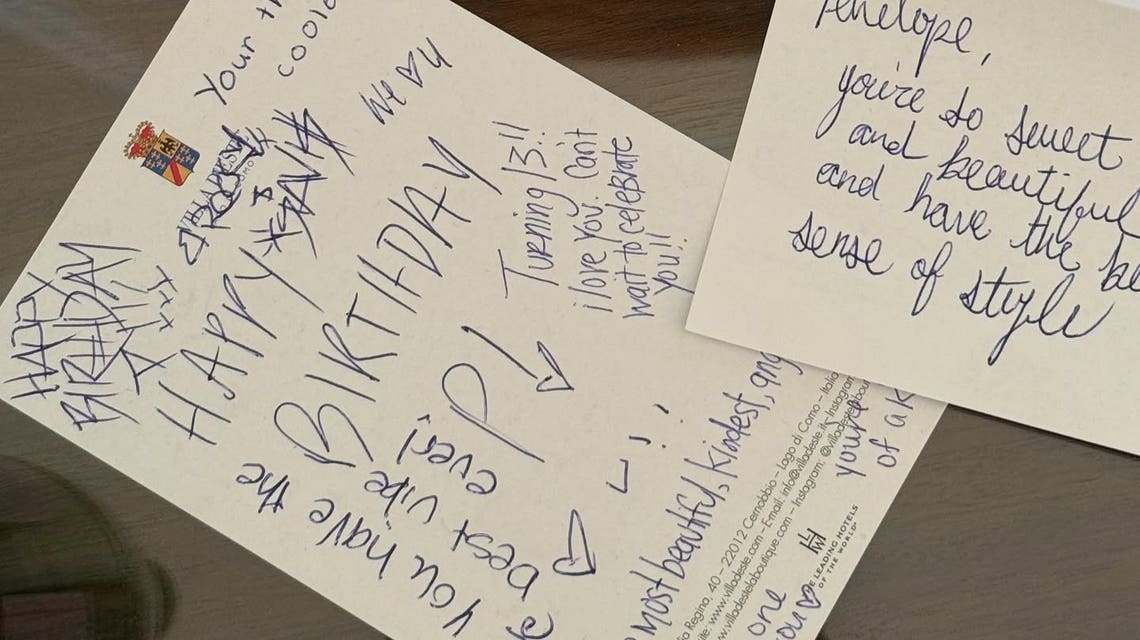 Your
HAPPY
BIRTHDAY
We ♡ U
HAPPY
BIRTHDAY
P!
Turning 13!!
i love you. Can't
wait to celebrate
you!!
You have the
best vibe
ever!
Most beautiful, kindest,
you're
of a k
one
Regina, 40 – 22012 Cernobbio – Lago di Como – Italia
www.villadeste.com – Email: info@villadeste.it – Instagram
www.villadestelaboutique.com – Instagram: @villadestelabou
LHW
LEADING HOTELS
OF THE WORLD
Penelope,
you're so sweet
and beautiful
and have the be
sense of style